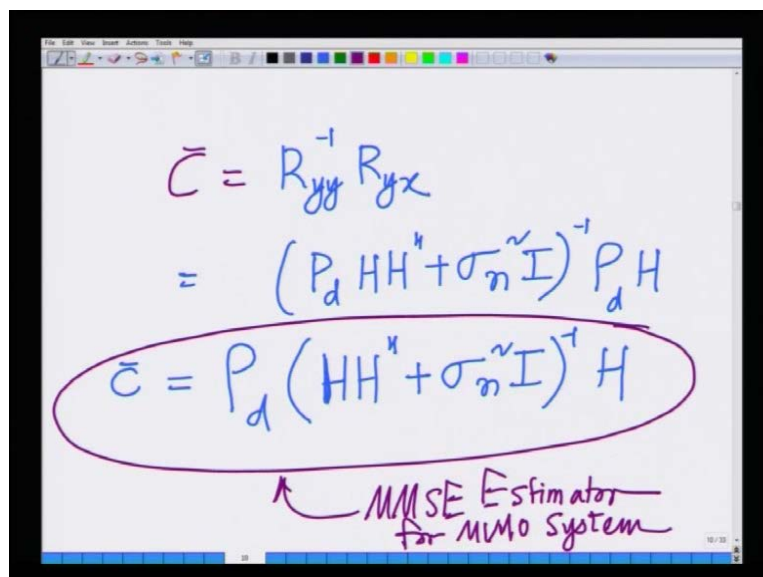 File Edit View Insert Actions Tools Help
C̄ = R_yy^-1 R_yx
= (P_d HH^H + σ_n^2 I)^-1 P_d H
c̄ = P_d (HH^H + σ_n^2 I)^-1 H
MMSE Estimator
for MIMO System